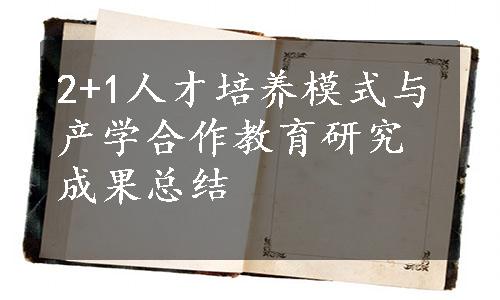 2+1人才培养模式与
产学合作教育研究
成果总结